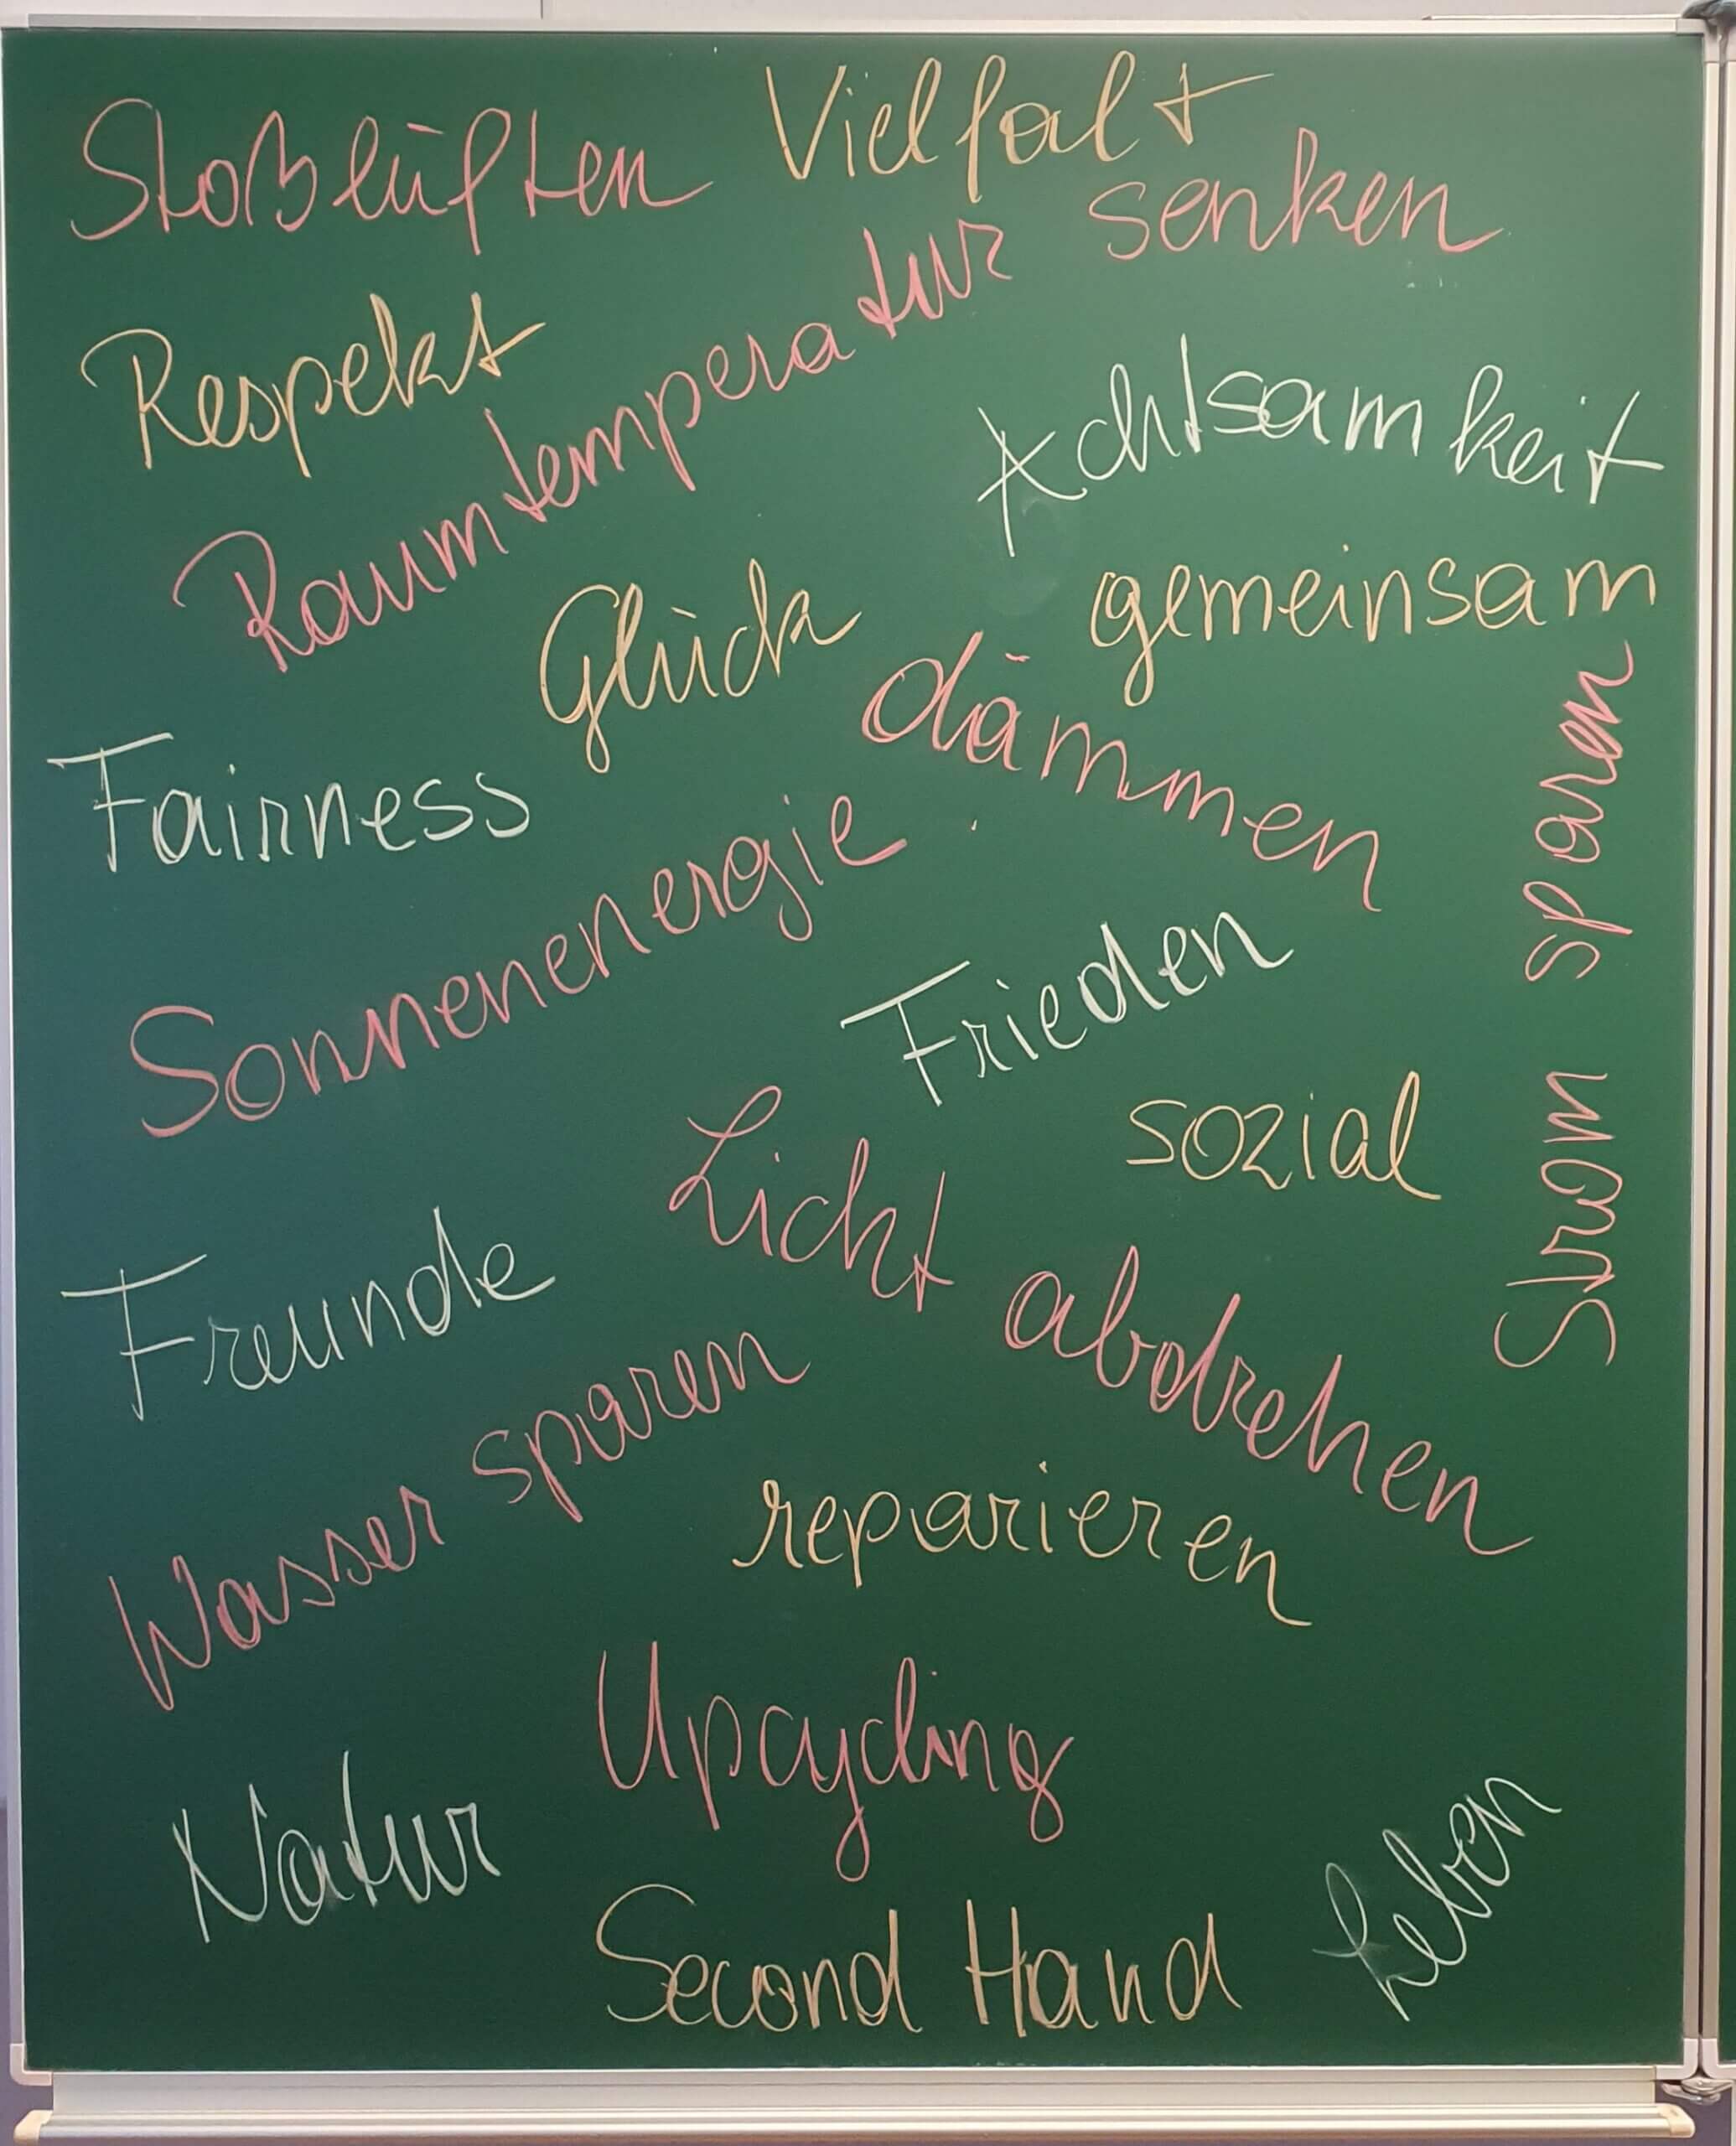 Stoßlüften
Vielfalt
Raumtemperatur senken
Respekt
Achtsamkeit
Glück
gemeinsam
dämmen
Fairness
Sonnenenergie
Strom sparen
Frieden
sozial
Licht abdrehen
Freunde
Wasser sparen
reparieren
Upcycling
Natur
Leben
Second Hand